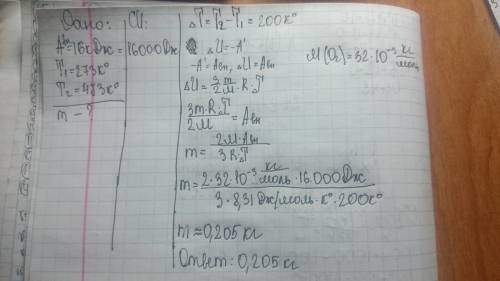 Дано:
Aвн=16кДж=
T₁=273K°
T₂=483K°
m - ?
СИ:
16000Дж
ΔT=T₂-T₁=200K°
ΔU=-A'
-A'=Aвн, ΔU=Aвн
ΔU=3m/2M·R·ΔT
3m·R·ΔT/2M=Aвн
m=2M·Aвн/3R·ΔT
m=2·32·10⁻³ кг/моль·16.000Дж/3·8,31Дж/моль·K°·200K°
m≈0,205кг
Ответ: 0,205кг
M(O₂)=32·10⁻³ кг/моль